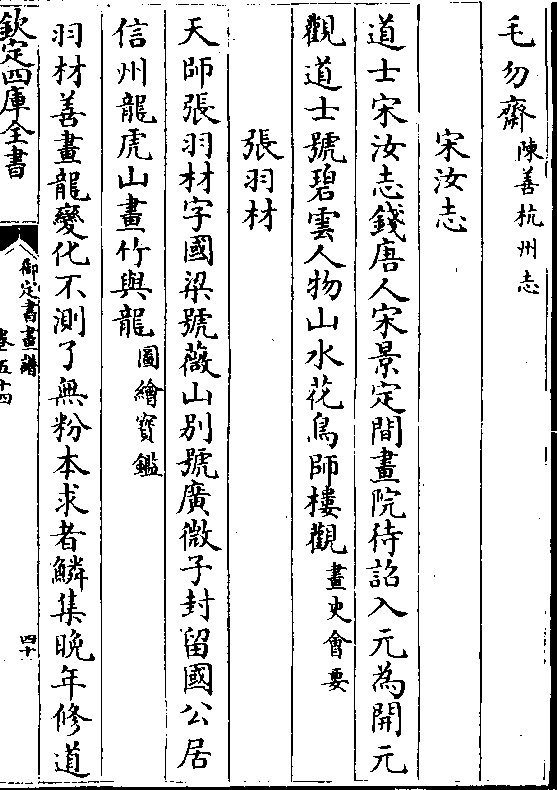 毛勿齋陳善杭州志
宋汝志
道士宋汝志錢唐人宋景定間畫院待詔入元為開元
觀道士號碧雲人物山水花鳥師樓觀畫史會要
張羽材
天師張羽材字國梁號薇山別號廣微子封留國公居
信州龍虎山畫竹與龍圖繪寶鑑
羽材善畫龍變化不測了無粉本求者鱗集晚年修道
欽定四庫全書
御定書畫譜
卷五十四
四十